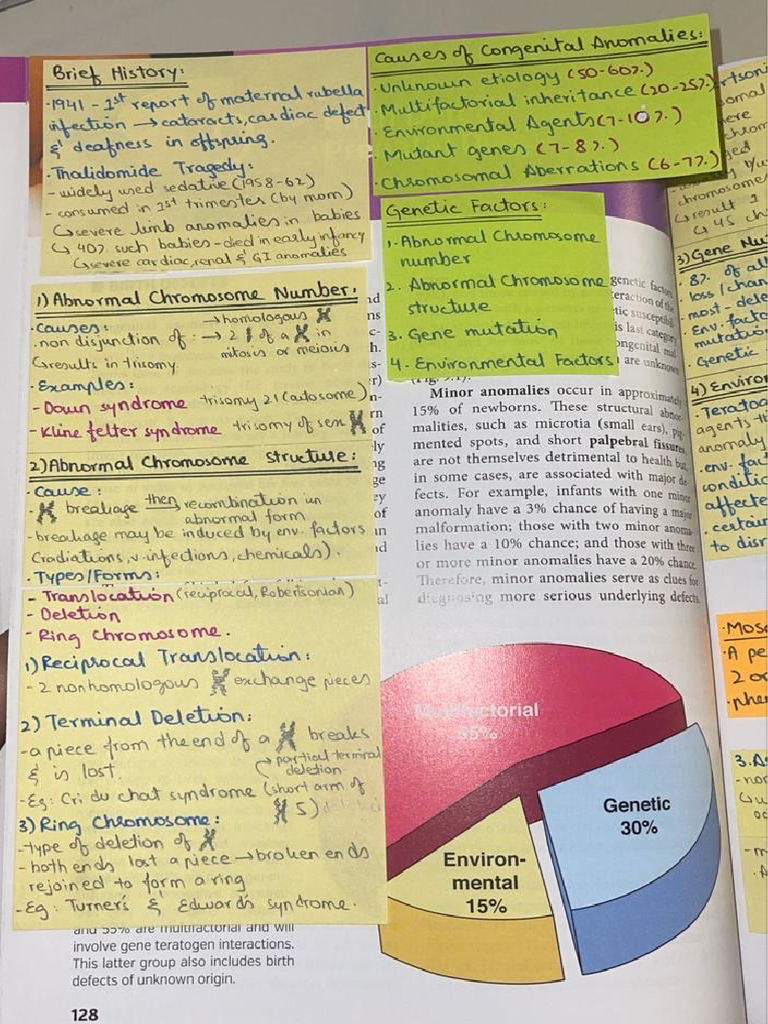 Brief History:
·1941 - 1st report of maternal rubella
infection → cataracts, cardiac defect
& deafness in offspring.
·Thalidomide Tragedy:
- widely used sedative (1958-62)
- consumed in 1st trimester (by mom)
↳ severe limb anomalies in babies
↳ 40% such babies - died in early infancy
↳ severe cardiac, renal & GI anomalies
Causes of Congenital Anomalies:
·Unknown etiology (50-60%.)
·Multifactorial inheritance (20-25%.)
·Environmental Agents (7-10%.)
·Mutant genes (7-8%.)
·Chromosomal Aberrations (6-7%.)
Genetic Factors:
1. Abnormal Chromosome
number
2. Abnormal Chromosome
structure
3. Gene mutation
4. Environmental Factors
1) Abnormal Chromosome Number:
·Causes:
→ homologous X
non disjunction of: → 2 of a X in
mitosis or meiosis
↳ results in trisomy.
·Examples:
- Down syndrome trisomy 21 (autosome)
- Kline felter syndrome trisomy of sex X
2) Abnormal Chromosome Structure:
·Cause:
X breakage then recombination in
abnormal form
- breakage may be induced by env. factors
(radiations, v.infections, chemicals).
·Types/Forms:
- Translocation (reciprocal, Robertsonian)
- Deletion
- Ring Chromosome.
1) Reciprocal Translocation:
- 2 nonhomologous X exchange pieces
2) Terminal Deletion:
- a piece from the end of a X breaks
& is lost.
→ partial terminal
deletion
- Eg: Cri du chat syndrome (short arm of
X 5)
3) Ring Chromosome:
- type of deletion of X
- both ends lost a piece → broken ends
rejoined to form a ring
- Eg: Turner's & Edward's syndrome.
genetic factors
is last category
are unknown
Minor anomalies occur in approximately
15% of newborns. These structural abnor-
malities, such as microtia (small ears), pig-
mented spots, and short palpebral fissures,
are not themselves detrimental to health but,
in some cases, are associated with major de-
fects. For example, infants with one minor
anomaly have a 3% chance of having a major
malformation; those with two minor anoma-
lies have a 10% chance; and those with three
or more minor anomalies have a 20% chance.
Therefore, minor anomalies serve as clues for
diagnosing more serious underlying defects.
Multifactorial
55%
Genetic
30%
Environ-
mental
15%
and 55% are multifactorial and will
involve gene teratogen interactions.
This latter group also includes birth
defects of unknown origin.
128
chromosome
↳ result 1
↳ 45 ch
3) Gene Mu
· 8% of al
· loss/chan
· most - dele
· Env. facto
mutation
· Genetic
4) Environ
· Teratog
agents th
anomaly
· env. fac
conditio
affecte
· certain
to disr
·Mos
·A pe
2 or
·phe
3. A
- no